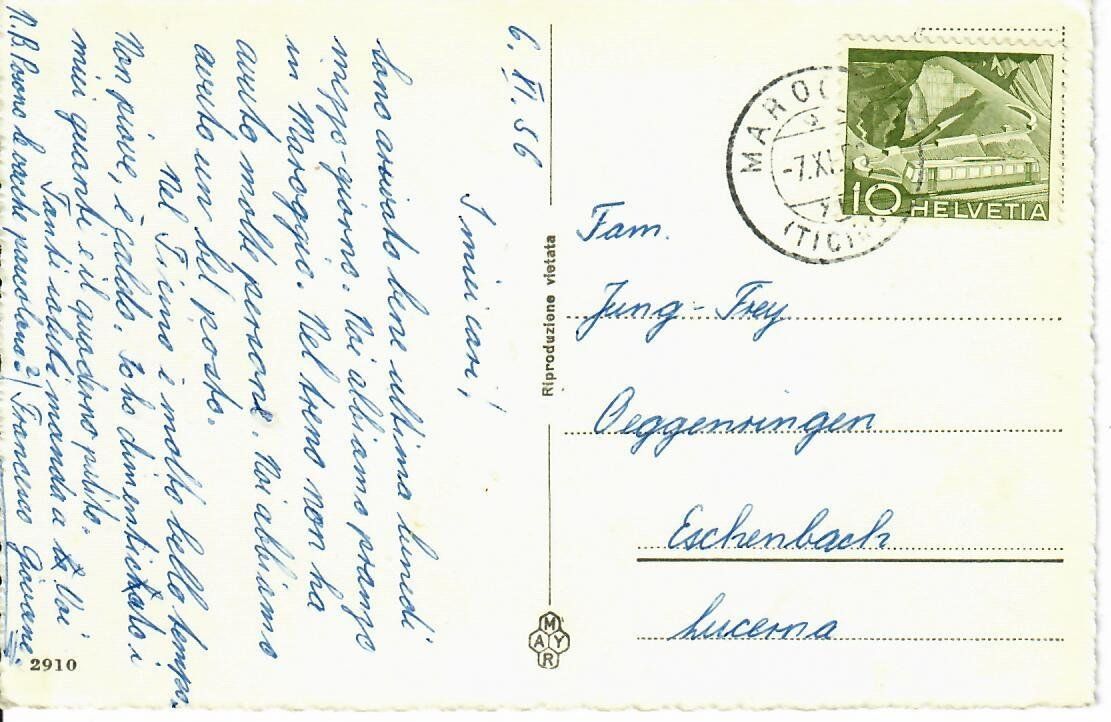 6. XI. 56
I miei cari,
Sono arrivato bene ultima lunedi
mezzo-giorno. Noi abbiamo pranzo
in Maroggia. Nel treno non ha
avuto molte persone. Noi abbiamo
avuto un bel posto.
Nel Ticino è molto bello tempo.
Non piove, è caldo. Io ho dimenticato i
miei guanti e il quaderno pulito.
Tanti saluti manda a Voi
Francesco Giovane.
N.B. Posono le vache pascolano?
2910
Riproduzione vietata
MAYR
MARO
-7.XI.5
(TICINO)
10 HELVETIA
Fam.
Jung-Frey
Oeggenringen
Eschenbach
Lucerna